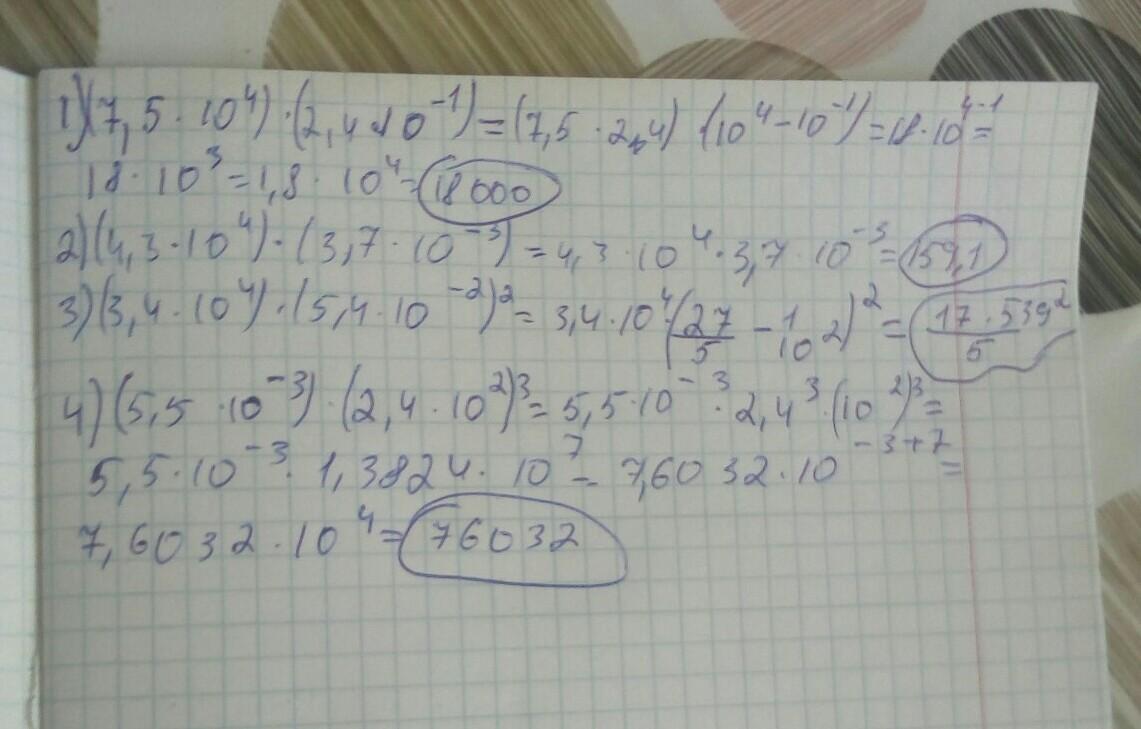 1)(7,5 · 10⁴) · (2,4 · 10⁻¹) = (7,5 · 2,4) · (10⁴ - 10⁻¹) = 18 · 10⁴⁻¹ =
18 · 10³ = 1,8 · 10⁴ = 18000
2)(4,3 · 10⁴) · (3,7 · 10⁻³) = 4,3 · 10⁴ · 3,7 · 10⁻³ = 159,1
3)(3,4 · 10⁴) · (5,4 · 10⁻²)² = 3,4 · 10⁴ (27/5 - 1/10²)² = 17 · 539²/5
4)(5,5 · 10⁻³) · (2,4 · 10²)³ = 5,5 · 10⁻³ · 2,4³ · (10²)³ =
5,5 · 10⁻³ · 1,3824 · 10⁷ = 7,6032 · 10⁻³⁺⁷ =
7,6032 · 10⁴ = 76032